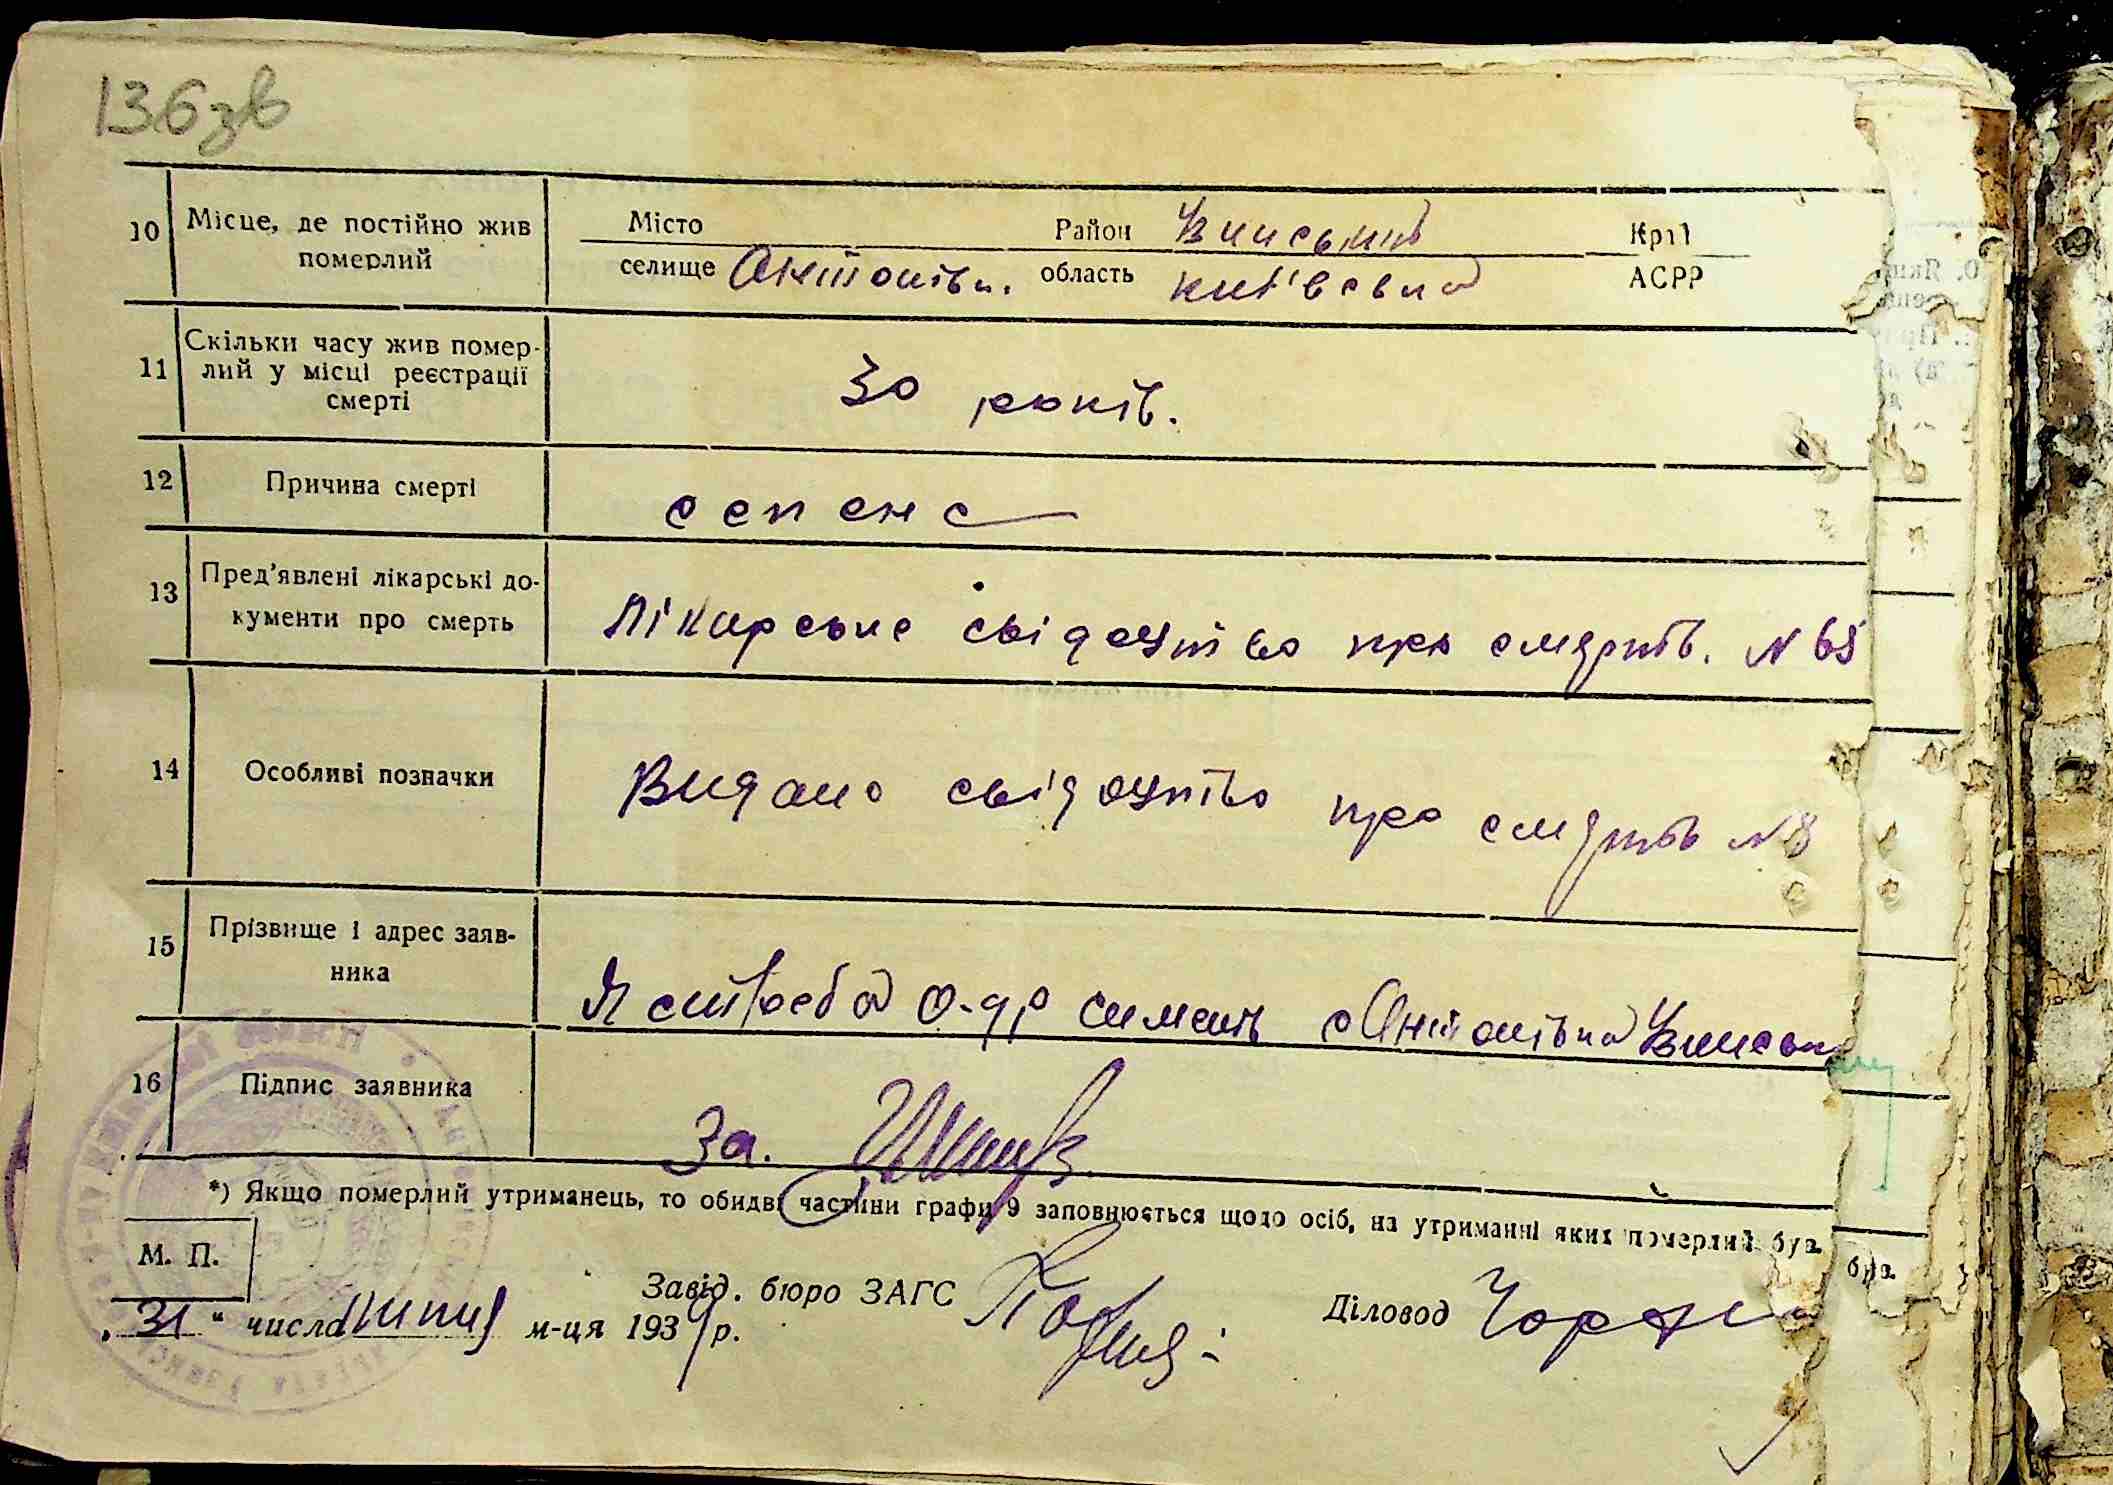 136зв
10 Місце, де постійно жив померлий
Місто Район Узинський Край
селище Антонівка. область київська АСРР
11 Скільки часу жив помер-
лий у місці реєстрації
смерті
30 років.
12 Причина смерті
сепсис
13 Пред'явлені лікарські до-
кументи про смерть
Лікарське свідоцтво про смерть. N 65
14 Особливі позначки
Видано свідоцтво про смерть N 8
15 Прізвище і адрес заяв-
ника
с Антонівка
16 Підпис заявника
За.
*) Якщо померлий утриманець, то обидві частини графи 9 заповнюється щодо осіб, на утриманні яких померлий був.
М. П.
Завід. бюро ЗАГС
Діловод
„31“ числа липня м-ця 1939 р.